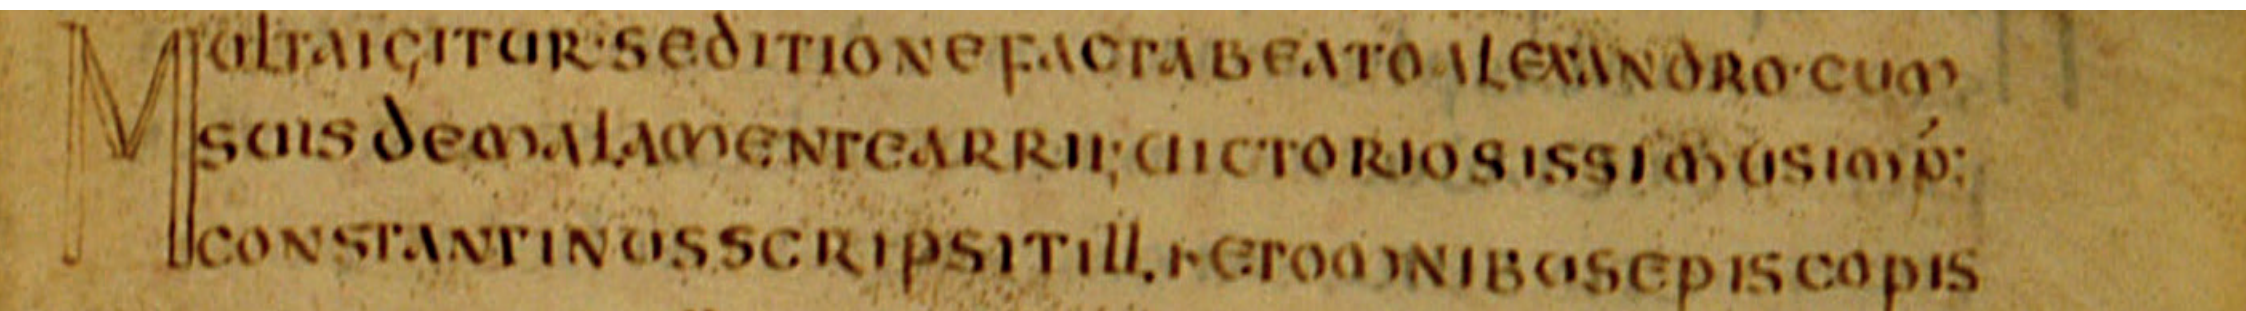 Multa igitur· seditione facta beato alexandro· cum
suis de mala mente arrii; uictoriosissimus imṕ:
constantinus scripsit ill. ⊢et omnibus episcopis